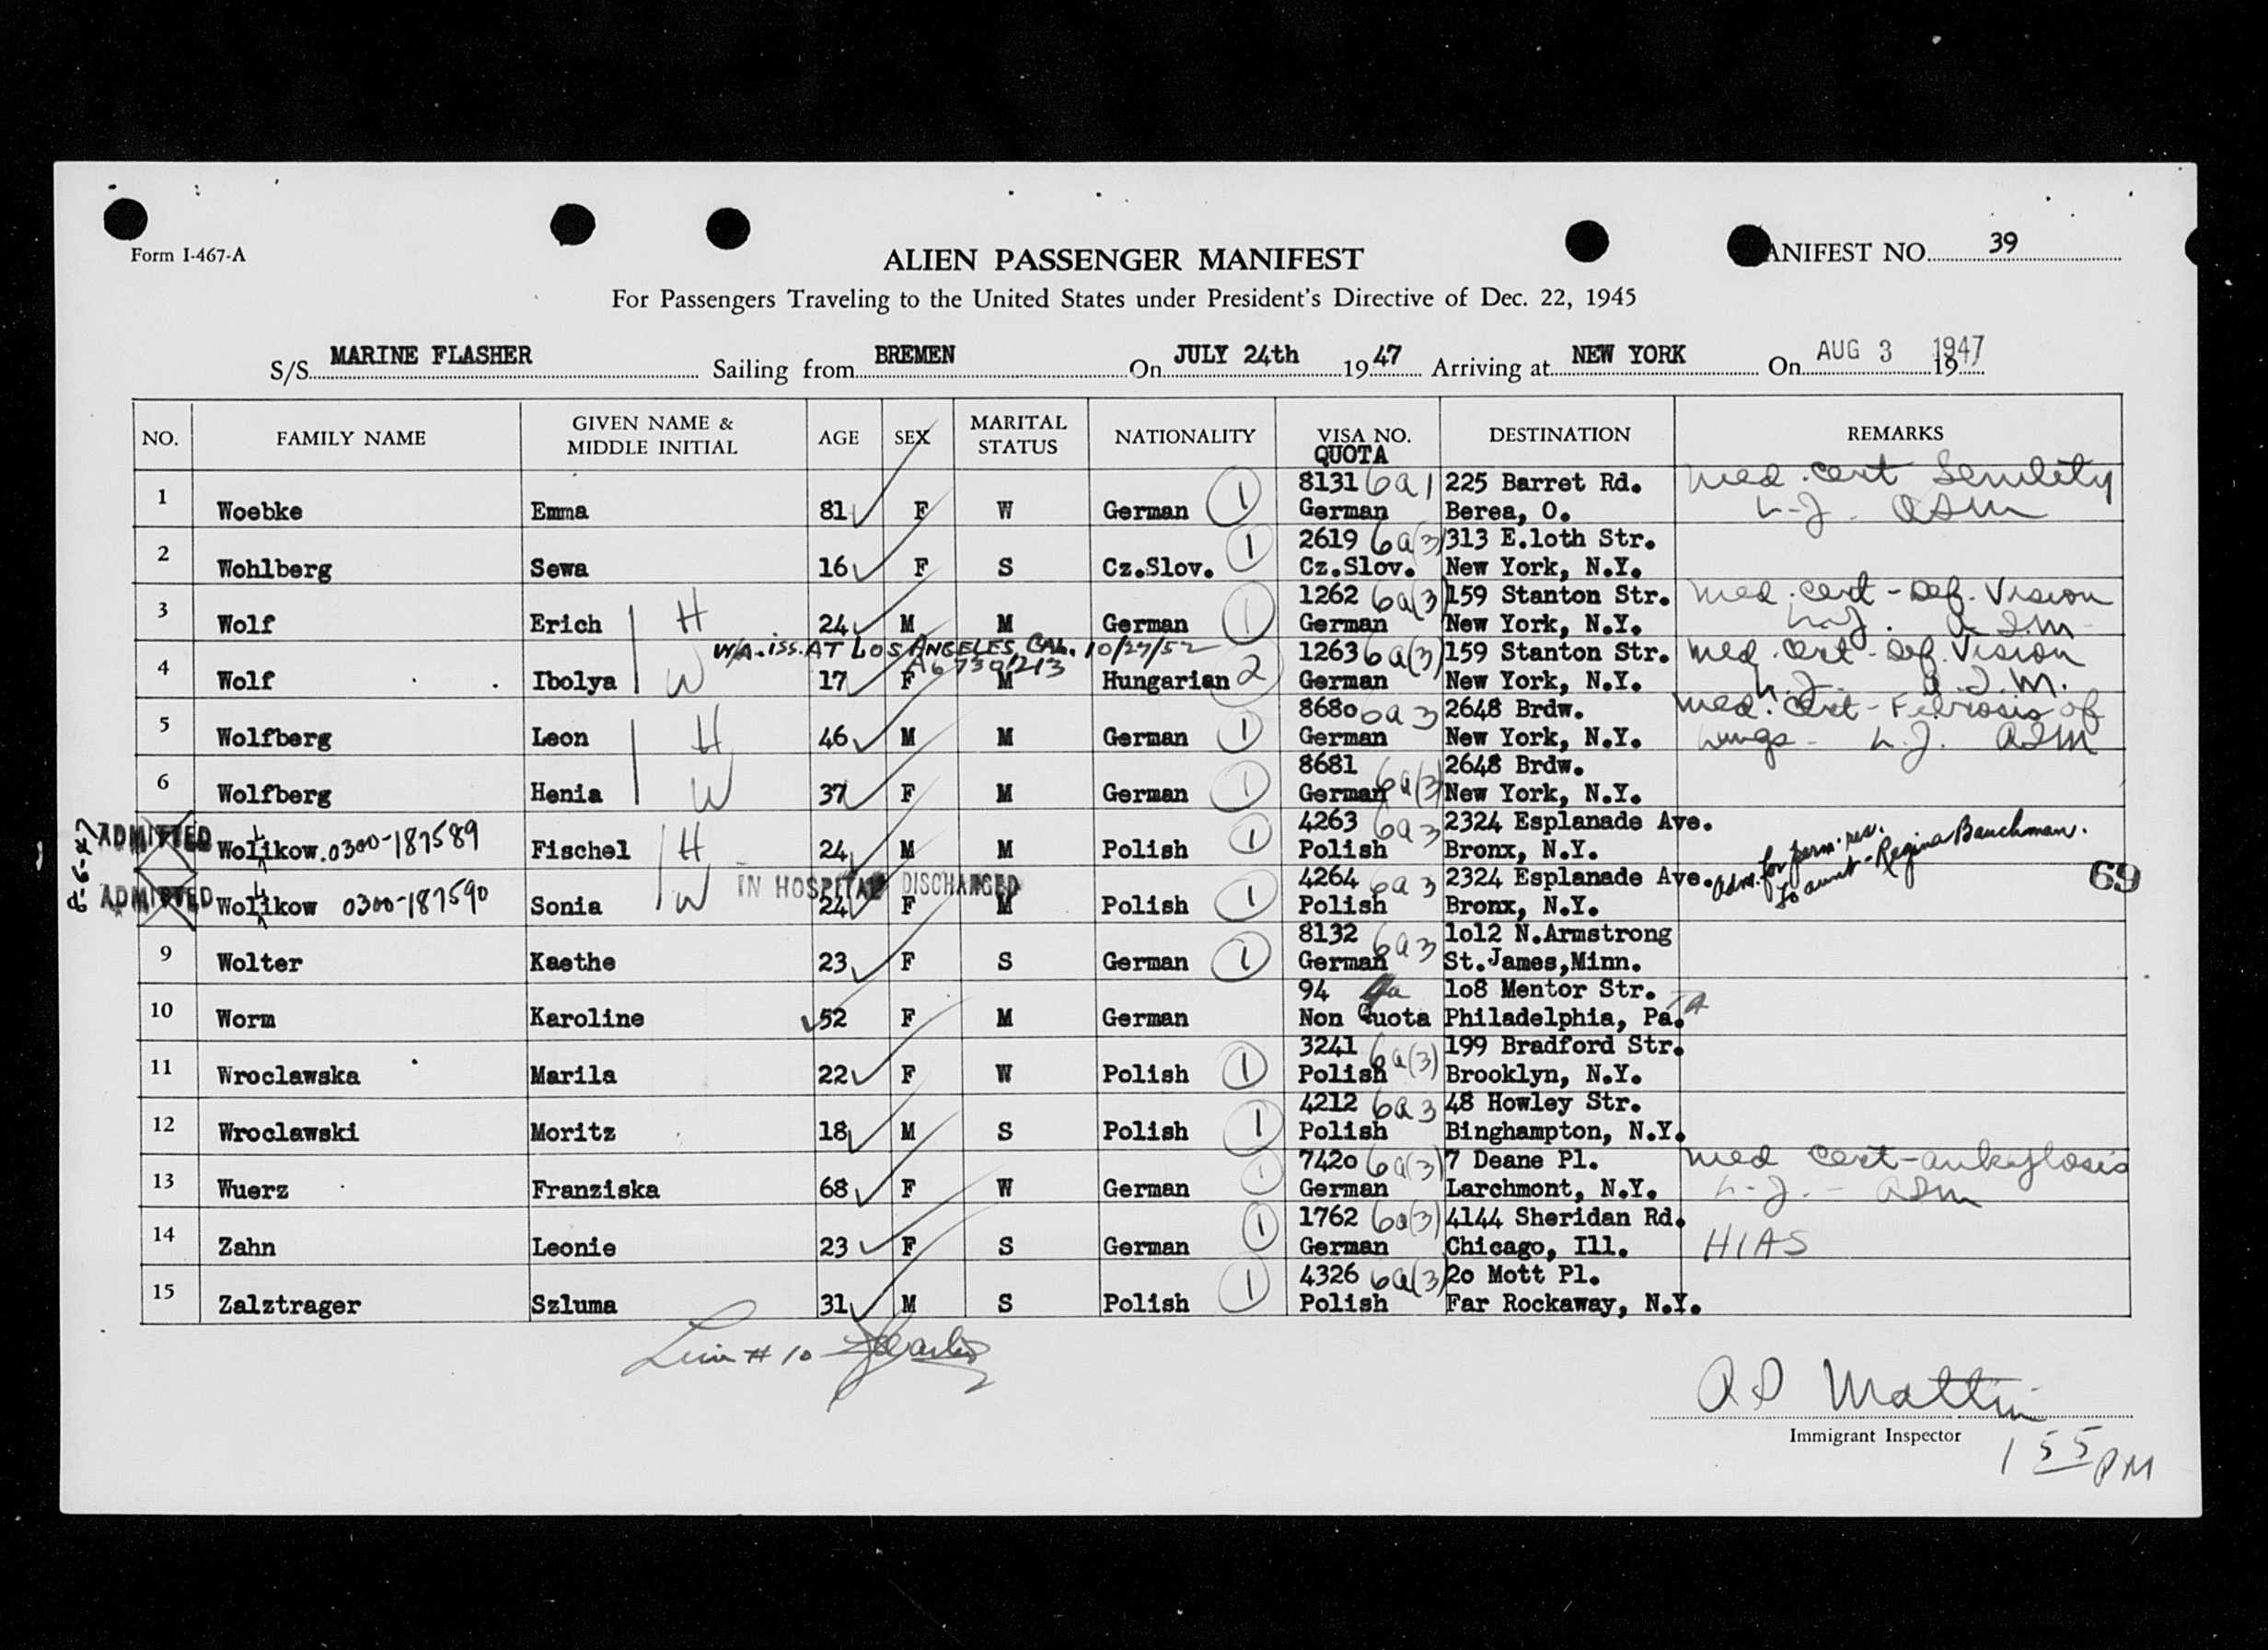 Form I-467-A
ALIEN PASSENGER MANIFEST
ANIFEST NO. 39
For Passengers Traveling to the United States under President's Directive of Dec. 22, 1945
S/S MARINE FLASHER Sailing from BREMEN On JULY 24th 1947 Arriving at NEW YORK On AUG 3 1947 19
NO. FAMILY NAME GIVEN NAME & MIDDLE INITIAL AGE SEX MARITAL STATUS NATIONALITY VISA NO. QUOTA DESTINATION REMARKS
8131 6a1 225 Barret Rd. Med. Cert Senility
1 Woebke Emma 81 F W German 1 German Berea, O.
2619 6a(3) 313 E.loth Str.
2 Wohlberg Sewa 16 F S Cz.Slov. 1 Cz.Slov. New York, N.Y.
1262 6a(3) 159 Stanton Str. Med. Cert - Def. Vision
3 Wolf Erich H 24 M M German 1 German New York, N.Y.
W/A. iss. AT LOS ANGELES, CAL. 10/27/52
A6739213
1263 6a(3) 159 Stanton Str. Med. Cert - Def. Vision
4 Wolf Ibolya W 17 F M Hungarian 2 German New York, N.Y.
8680 6a3 2648 Brdw. Med. Cert - Fibrosis of
5 Wolfberg Leon H 46 M M German 1 German New York, N.Y. Lungs
8681 6a(3) 2648 Brdw.
6 Wolfberg Henia W 37 F M German 1 German New York, N.Y.
4263 6a3 2324 Esplanade Ave.
ADMITTED Wolikow 0300-187589 Fischel H 24 M M Polish 1 Polish Bronx, N.Y.
Adm. for perm. res.
to aunt - Regina Bauchman.
69
IN HOSPITAL DISCHARGED
4264 6a3 2324 Esplanade Ave.
ADMITTED Wolikow 0300-187590 Sonia W 24 F M Polish 1 Polish Bronx, N.Y.
8132 6a3 lol2 N.Armstrong
9 Wolter Kaethe 23 F S German 1 German St.James,Minn.
94 4a lo8 Mentor Str.
10 Worm Karoline 52 F M German Non Quota Philadelphia, Pa.
3241 6a(3) 199 Bradford Str.
11 Wroclawska Marila 22 F W Polish 1 Polish Brooklyn, N.Y.
4212 6a3 48 Howley Str.
12 Wroclawski Moritz 18 M S Polish 1 Polish Binghampton, N.Y.
7420 6a(3) 7 Deane Pl. Med Cert - ankylosis
13 Wuerz Franziska 68 F W German 1 German Larchmont, N.Y.
1762 6a(3) 4144 Sheridan Rd.
14 Zahn Leonie 23 F S German 1 German Chicago, Ill. HIAS
4326 6a(3) 2o Mott Pl.
15 Zalztrager Szluma 31 M S Polish 1 Polish Far Rockaway, N.Y.
Line # 10
Immigrant Inspector
1 55 PM